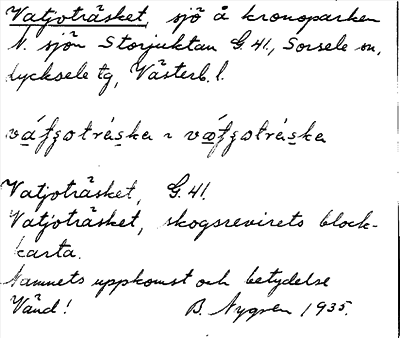 Vatjoträsket, sjö å kronoparken
N. sjön Storjuktan G. 41., Sorsele sn,
Lycksele tg, Västerb. l.
Vatjoträsket, G. 41.
Vatjoträsket, skogsrevirets block-
karta.
Namnets uppkomst och betydelse
Vänd! B. Nygren 1935.